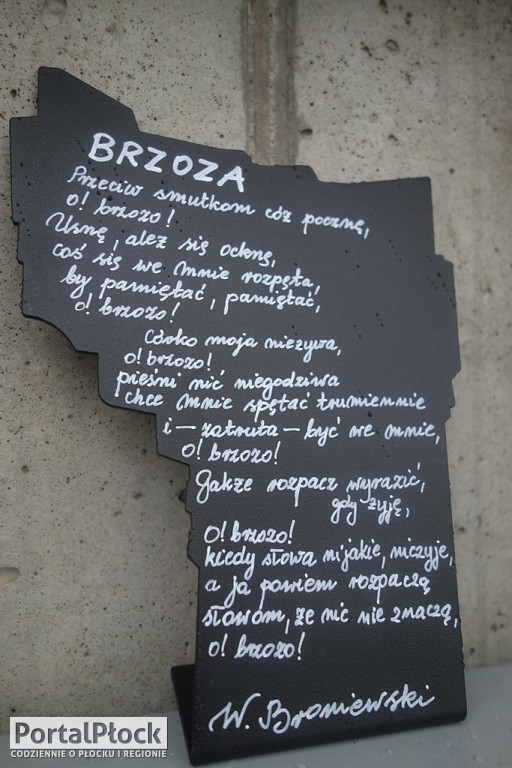 BRZOZA
Przeciw smutkom cóż pocznę,
o! brzozo!
Usnę, ależ się ocknę,
coś się we mnie rozpęta,
by pamiętać, pamiętać,
o! brzozo!
Córko moja nieżywa,
o! brzozo!
pieśni nić niegodziwa
chce mnie spętać trumiennie
i – zatruta – być we mnie,
o! brzozo!
Jakże rozpacz wyrazić,
gdy żyję,
o! brzozo!
kiedy słowa nijakie, niczyje,
a ja powiem rozpaczą
słowom, że nic nie znaczą,
o! brzozo!
W. Broniewski
PortalPłock
CODZIENNIE O PŁOCKU I REGIONIE